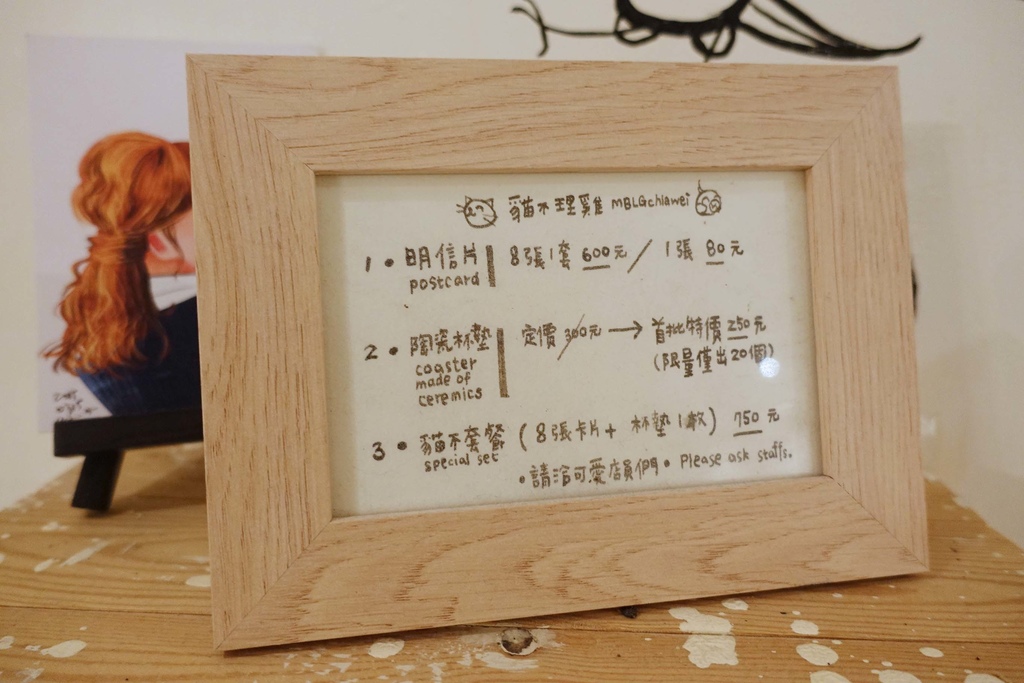 貓不理雞 MBLGchiawei
1. 明信片 8張1套 600元 / 1張 80元
postcard
2. 陶瓷杯墊 定價 300元 → 首批特價 250元
coaster (限量僅出20個)
made of
ceremics
3. 貓不套餐 (8張卡片+ 杯墊1枚) 750元
special set
•請洽可愛店員們• Please ask staffs.